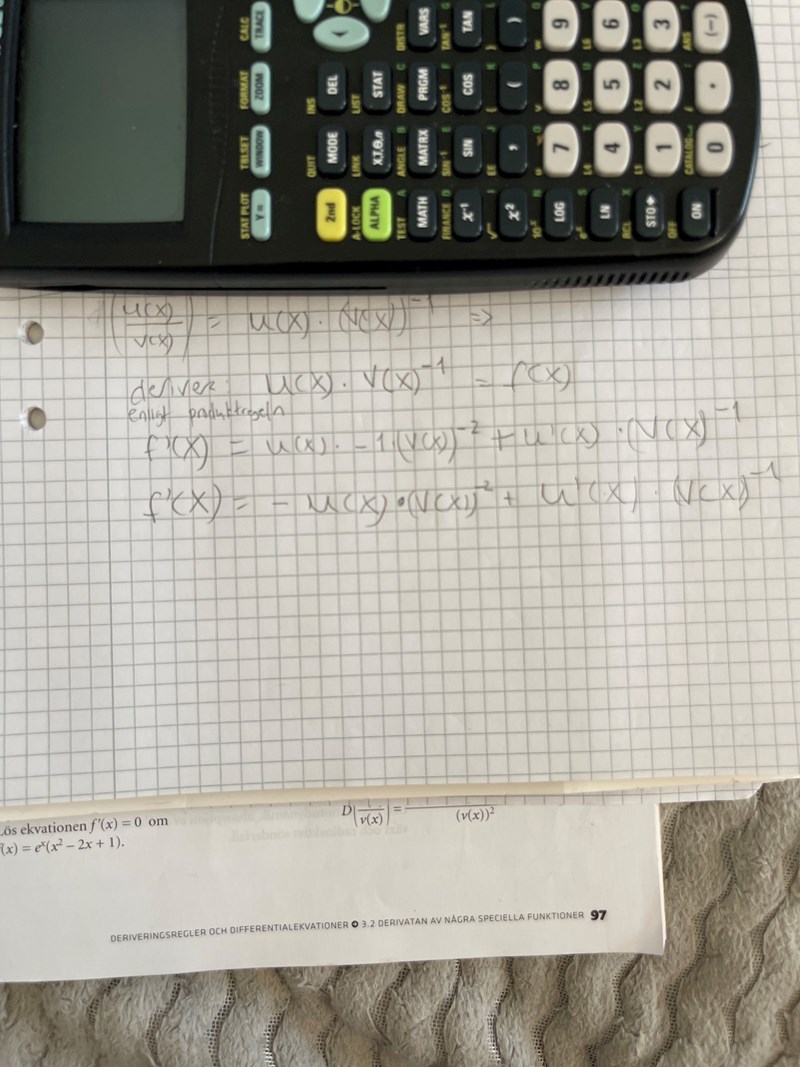 STAT PLOT TBLSET FORMAT CALC
Y= WINDOW ZOOM TRACE
QUIT INS
2nd MODE DEL
A-LOCK LINK LIST
ALPHA X,T,Θ,n STAT
TEST A ANGLE B DRAW C DISTR
MATH MATRX PRGM VARS
FINANCE D SIN⁻¹ E COS⁻¹ F TAN⁻¹ G
x⁻¹ SIN COS TAN
√ I EE J { K } L
x² , ( )
10ˣ N u O v P w Q
LOG 7 8 9
eˣ S L4 T L5 U L6 V
LN 4 5 6
RCL X L1 Y L2 Z L3 θ
STO➧ 1 2 3
OFF CATALOG i ANS
ON 0 . (-)
(u(x)/v(x)) = u(x) · (v(x))⁻¹ ⇒
derivera: u(x) · v(x)⁻¹ = f(x)
enligt produktregeln
f'(x) = u(x) · -1·(v(x))⁻² + u'(x) · (v(x)⁻¹
f'(x) = - u(x) · (v(x))⁻² + u'(x) · (v(x))⁻¹
Lös ekvationen f'(x) = 0 om
f(x) = eˣ(x² – 2x + 1).
D v(x) = (v(x))²
DERIVERINGSREGLER OCH DIFFERENTIALEKVATIONER 3.2 DERIVATAN AV NÅGRA SPECIELLA FUNKTIONER 97